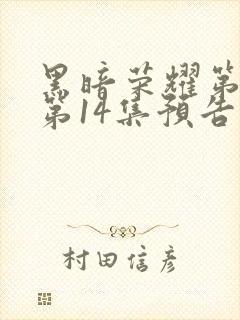 黑暗荣耀第
第14集預告
村田信彦